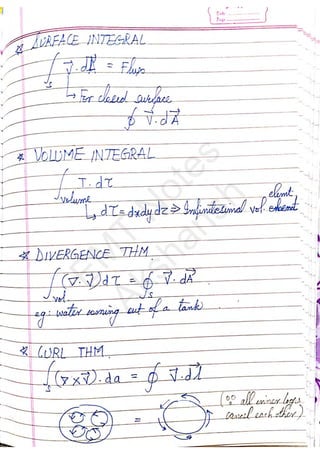 Date
Page
* SURFACE INTEGRAL
∫ₛ V⃗.dA⃗ = Flux
↳ For closed surface
∮ V⃗.dA⃗
* VOLUME INTEGRAL
∫volume T.dτ
elemt.
↳ dτ = dxdydz ⇒ Infinitesimal vol.
* DIVERGENCE THM
∫vol. (∇.V⃗)dτ = ∮ₛ V⃗.dA⃗
eg: water coming out of a tank
* CURL THM
∫ₛ (∇×V⃗).da = ∮ V⃗.dl⃗
=
(∵ all inner loops
cancel each other)
Notes